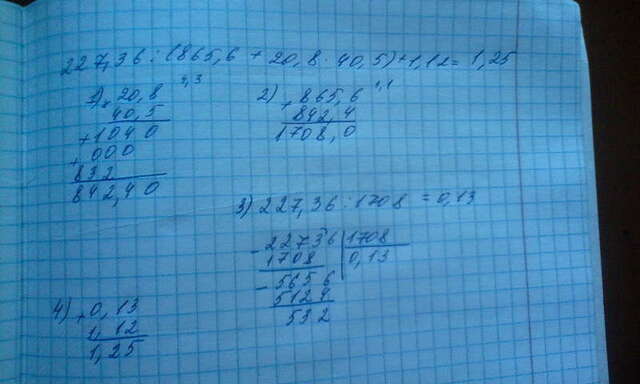 227,36 : (865,6 + 20,8 · 40,5) + 1,12 = 1,25
4,3
1) × 20,8
40,5
+ 1040
+ 000
832
842,40
1,1
2) + 865,6
842,4
1708,0
3) 227,36 : 1708 = 0,13
- 22736 | 1708
1708 | 0,13
- 5656
5124
532
4) + 0,13
1,12
1,25